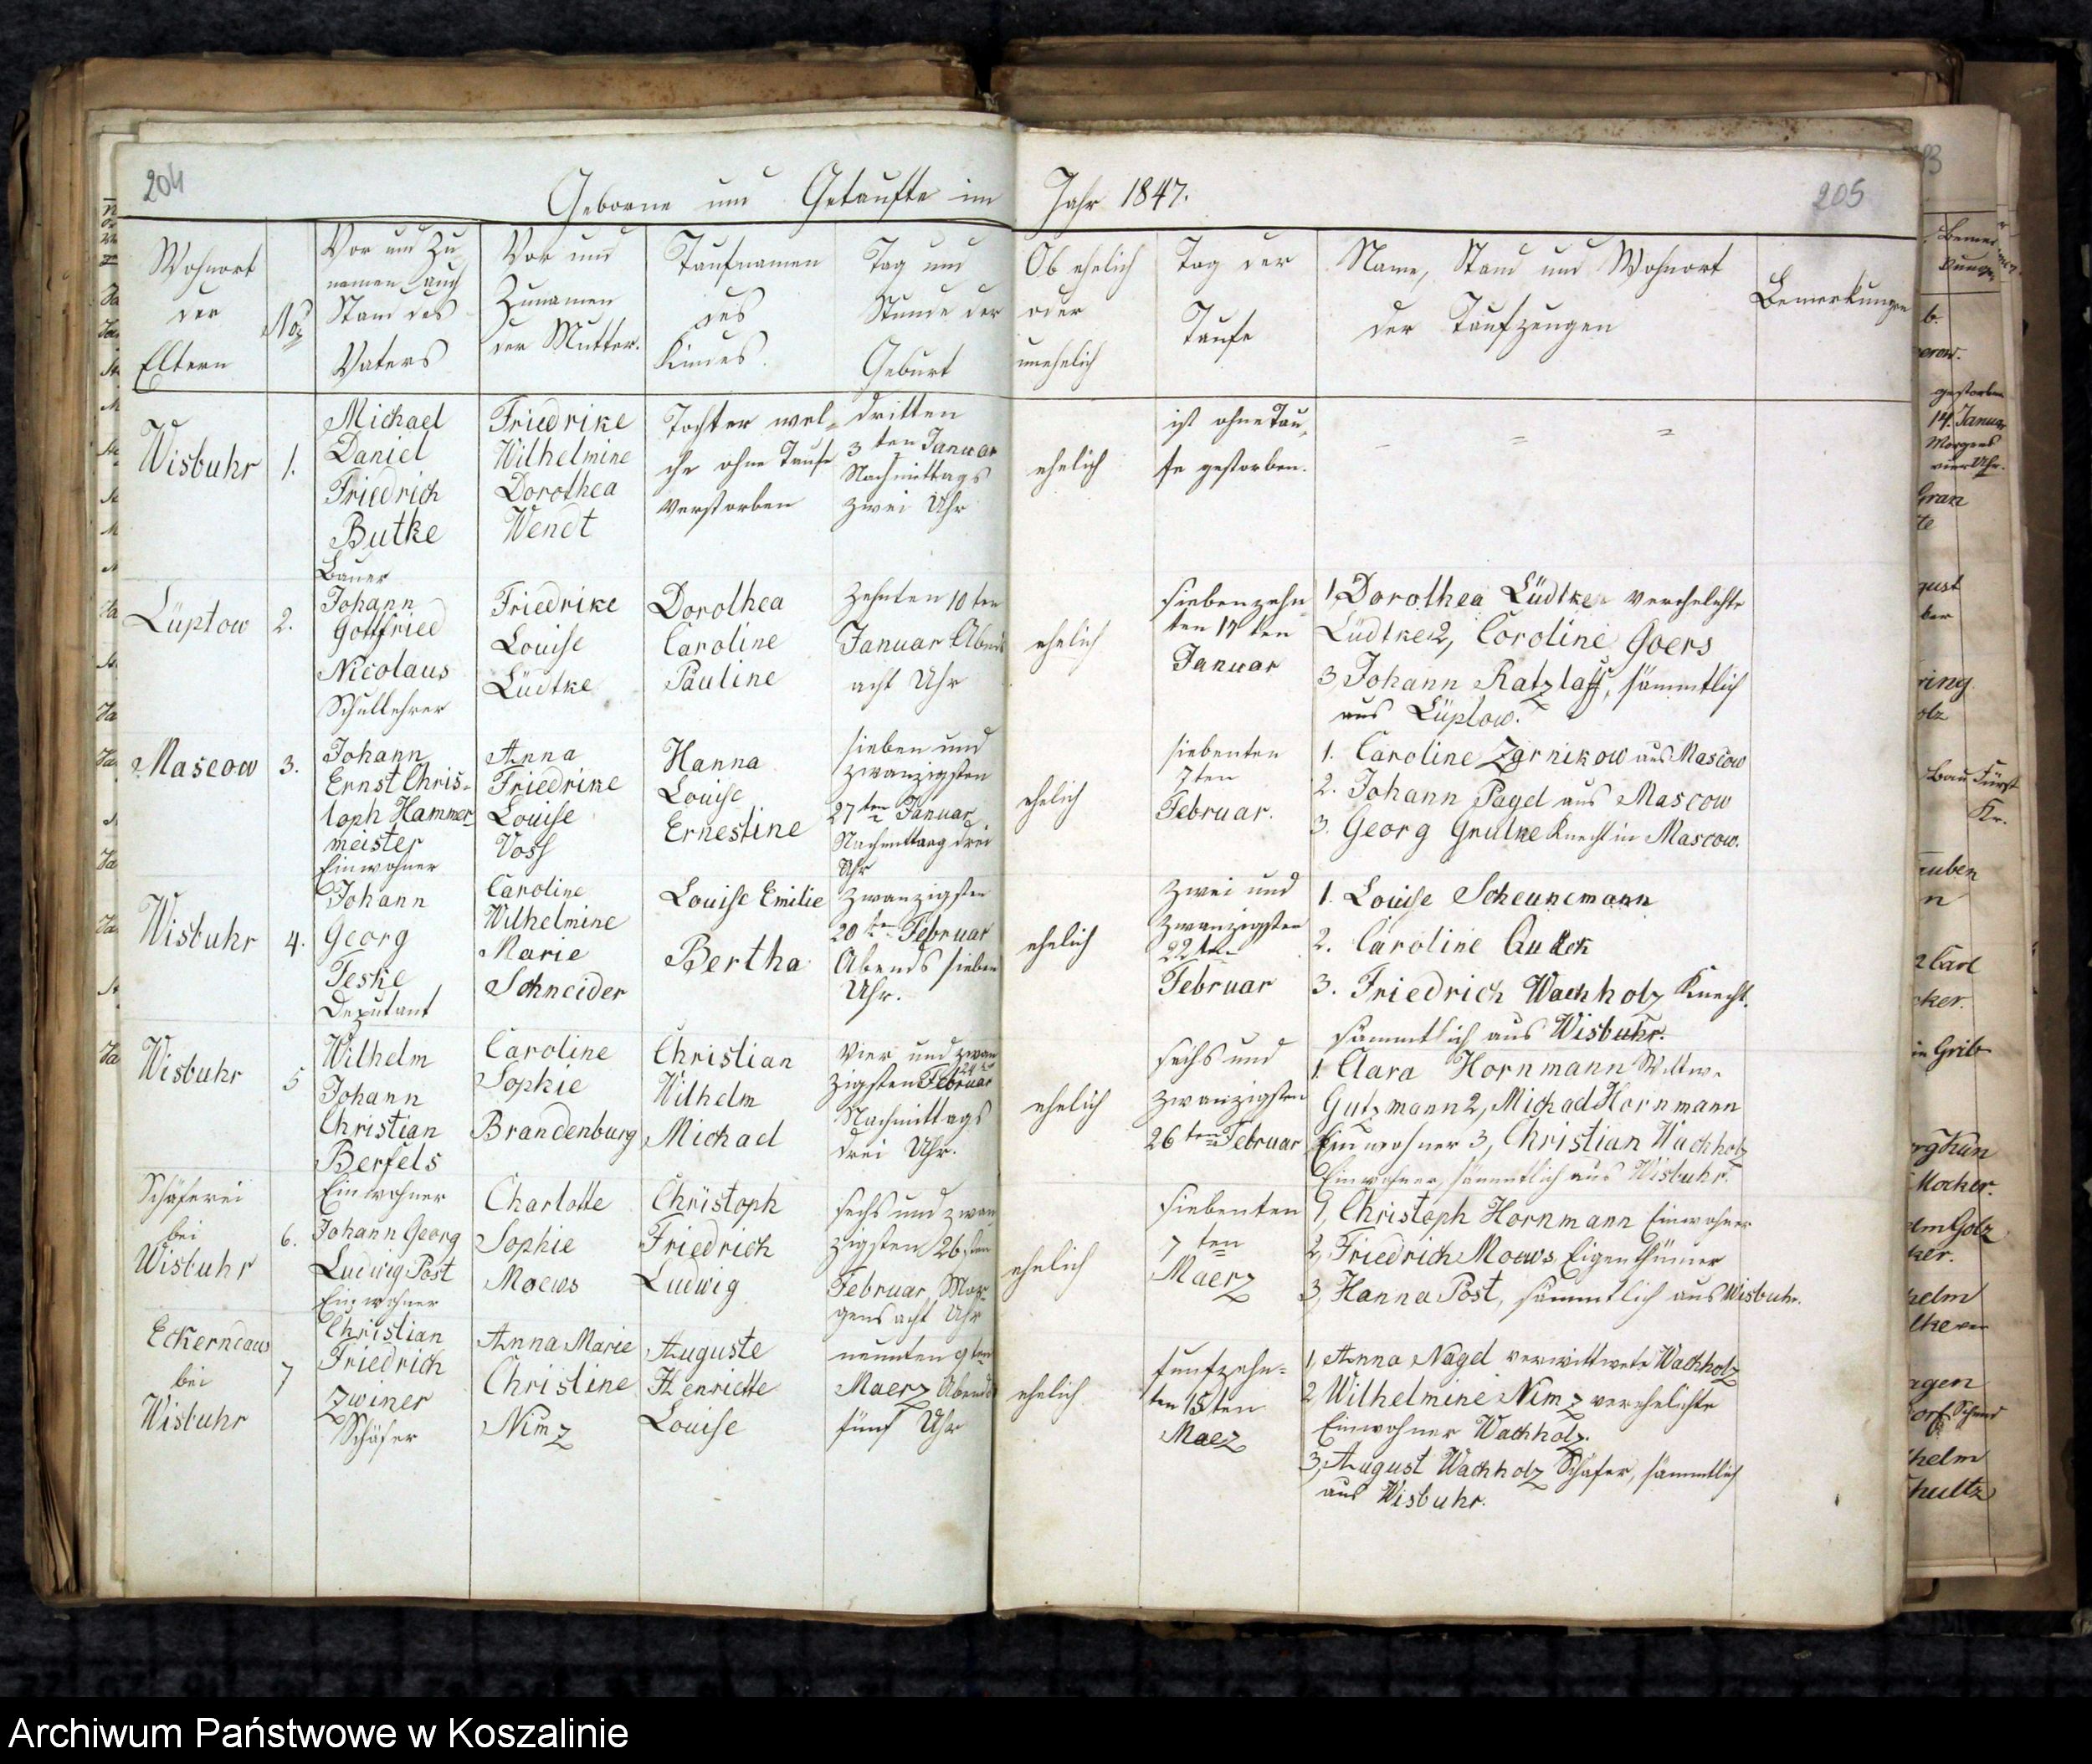 204
Geborne und Getaufte im
Wohnort
der
Eltern
No
Vor und Zu-
namen auch
Stand des
Vaters
Vor und
Zunamen
der Mutter.
Taufnamen
des
Kindes.
Tag und
Stunde der
Geburt
Wisbuhr
1.
Michael
Daniel
Friedrich
Butke
Bauer
Friedrike
Wilhelmine
Dorothea
Wendt
Tochter wel-
che ohne Taufe
verstorben
dritten
3ten Januar
Nachmittags
zwei Uhr
Lüptow
2.
Johann
Gottfried
Nicolaus
Schullehrer
Friedrike
Louise
Lüdtke
Dorothea
Caroline
Pauline
Zehnten 10ten
Januar Abends
acht Uhr
Mascow
3.
Johann
Ernst Chris-
toph Hammer
meister
Einwohner
Anna
Friedrike
Louise
Voss
Hanna
Louise
Ernestine
sieben und
zwanzigsten
27ten Januar
Nachmittag drei
Uhr
Wisbuhr
4.
Johann
Georg
Teske
Deputant
Caroline
Wilhelmine
Marie
Schneider
Louise Emilie
Bertha
zwanzigsten
20ten Februar
Abends sieben
Uhr.
Wisbuhr
5
Wilhelm
Johann
Christian
Berfels
Einwohner
Caroline
Sophie
Brandenburg
Christian
Wilhelm
Michael
vier und zwan
zigsten 24ten Februar
Nachmittags
drei Uhr.
Schäferei
bei
Wisbuhr
6.
Johann Georg
Ludwig Post
Einwohner
Charlotte
Sophie
Moews
Christoph
Friedrich
Ludwig
sechs und zwan
zigsten 26sten
Februar Mor-
gens acht Uhr
Eckerndaus
bei
Wisbuhr
7
Christian
Friedrich
Zwiner
Schäfer
Anna Marie
Christine
Nimz
Auguste
Henriette
Louise
neunten 9ten
Maerz Abends
fünf Uhr
Jahr 1847.
205
Ob ehelich
oder
unehelich
Tag der
Taufe
Name, Stand und Wohnort
der Taufzeugen
Bemerkungen
ehelich
ist ohne Tau-
fe gestorben.
ehelich
siebenzehn
ten 17ten
Januar
1, Dorothea Lüdtke verehelichte
Lüdtke 2, Caroline Goers
3, Johann Ratzlaff, sämmtlich
aus Lüptow.
ehelich
siebenten
7ten
Februar.
1. Caroline Zarnikow aus Mascow
2. Johann Pagel aus Mascow
3. Georg Grulke Knecht in Mascow.
ehelich
zwei und
zwanzigsten
22ten
Februar
1. Louise Scheunemann
2. Caroline Quack
3. Friedrich Wachholz Knecht.
sämmtlich aus Wisbuhr.
ehelich
sechs und
zwanzigsten
26ten Februar
1. Clara Hornmann Wittwe
Gutzmann 2, Michael Hornmann
Einwohner 3, Christian Wachholz
Einwohner, sämmtlich aus Wisbuhr.
ehelich
siebenten
7ten
Maerz
1, Christoph Hornmann Einwohner
2, Friedrich Moews, Eigenthümer
3, Hanna Post, sämmtlich aus Wisbuhr.
ehelich
funfzehn-
ten 15ten
Maez
1, Anna Nagel verwittwete Wachholz
2 Wilhelmine Nimz verehelichte
Einwohner Wachholz.
3, August Wachholz Schäfer, sämmtlich
aus Wisbuhr.
gestorben
14. Januar
Morgens
vier Uhr.
Archiwum Państwowe w Koszalinie